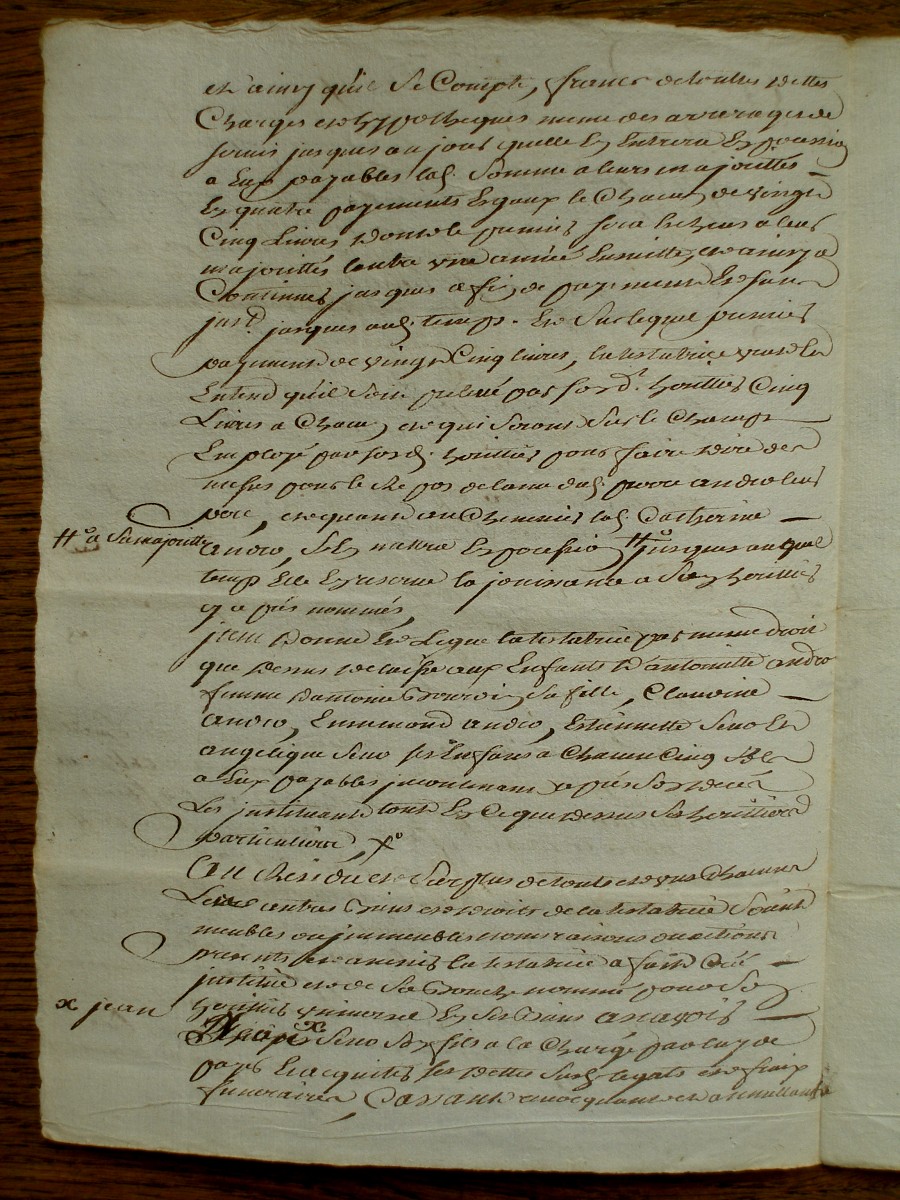 et ainsy quil se Compte, franc de touttes dettes
Charges et hypotheques meme des arrerages de
servis jusques au jour quelle En Entrera En possession
a Eux payables lad. somme a leurs majorittés
En quatre payements Egaux le Chacun de vingt
Cinq Livres dont le premier sera h a leur
majorittés lautre une année Ensuitte, et ainsy a
Continuer jusques a fin de payement Et sans
jusques aud. temps. Et sur lequel premier
payement de vingt Cinq livres, la testatrice veut Et
Entend qu'il soit prelevé par sond. heritier Cinq
Livres a Chacun, et qui seront sur le Champ
Employé par sond. heritier pour faire dire des
messes pour le Repos de lame dud. pierre andro leur
pere, et quant au Cheminis lad. Catherine
#o a sa majoritté
andro, s'En mettra En possession #o jusques auquel
temp Elle En reserve la jouissance a son heritier
cy a prés nommés,
jtem donne Et Legue la testatrice par meme droit
que dessus delaisse aux Enfants d'antoinette andro
femme d'antoine sa fille, Claudine
andro, Ennemond andro, Estiennette Seno Et
angelique Seno ses Enfans a Chacun Cinq
a Eux payables jncontinant a prés son decés
Les jnstituant tout En Ce que dessus ses heritiers
particuliers, Xo
Au Residu et surplus de touts et uns Chacuns
Les autres Biens et droits de la testatrice soient
meubles ou jmmeubles noms raisons ou actions
presents et avenir la testatrice a fait Créé
jnstitué et de sa Bouche nommé pour son
x jean
heritier universel En ses Biens asavoir
x Seno son fils a la Charge par luy de
payer Et acquiter ses dettes susd. legats et fraix
funeraires, Cassant revocquant et annullant